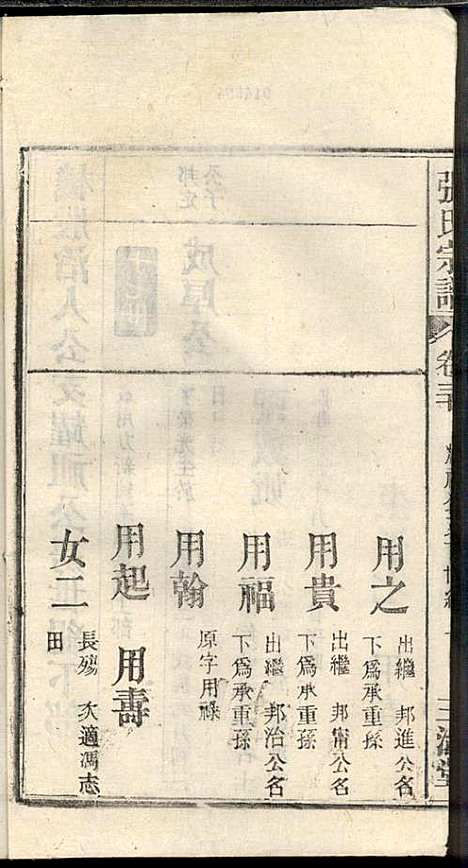 張氏宗譜
卷三
用之
出繼 邦進公名
下爲承重孫
用貴
出繼 邦甯公名
下爲承重孫
用福
出繼 邦治公名
下爲承重孫
用翰
原字用祿
用起 用壽
女二
長殤 次適馮志
田